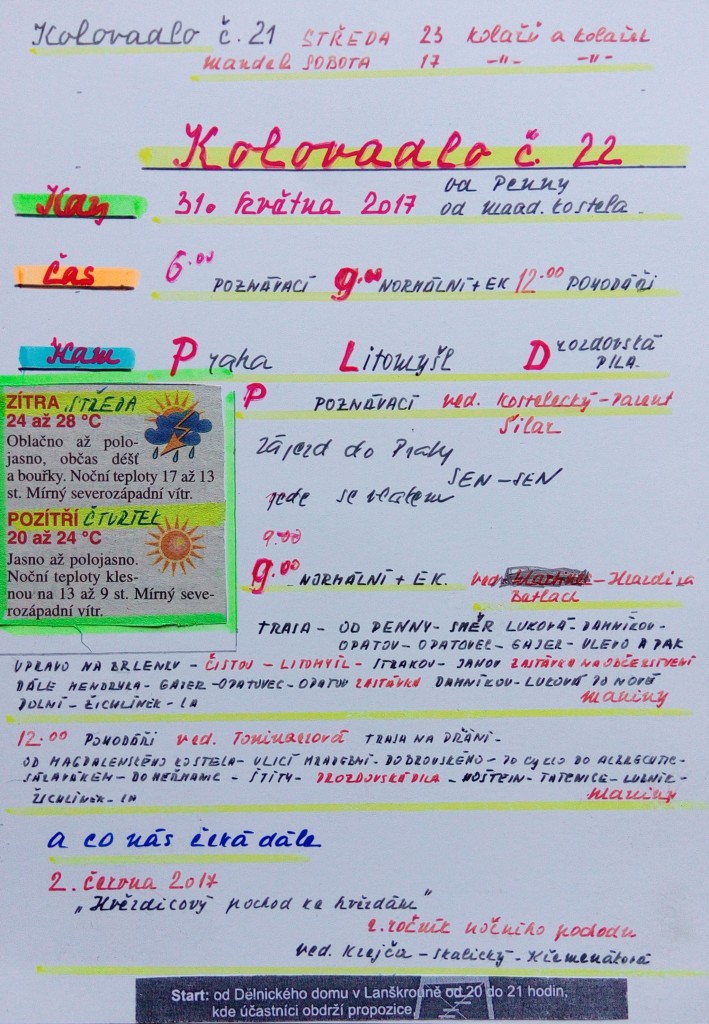 Kolovadlo č. 21 STŘEDA 23 kolařů a kolařek
Mandel SOBOTA 17 -"- -"-
Kolovadlo č. 22
Kdy 31. května 2017 od Penny
od maad. kostela
Čas 6.00 POZNÁVACÍ 9.00 NORMÁLNÍ + EK 12.00 POHODÁŘI
Kam Praha Litomyšl Drozdovská
PILA.
ZÍTRA STŘEDA
24 až 28 °C
Oblačno až polo-
jasno, občas déšť
a bouřky. Noční teploty 17 až 13
st. Mírný severozápadní vítr.
POZÍTŘÍ ČTVRTEK
20 až 24 °C
Jasno až polojasno.
Noční teploty kles-
nou na 13 až 9 st. Mírný seve-
rozápadní vítr.
P POZNÁVACÍ ved. Kostelecký - Parent
Šilar
zájezd do Prahy
jede se vlakem SEN-SEN
9.00
9.00 NORMÁLNÍ + EK. ved.
TRASA - OD PENNY - SMĚR LUKOVÁ - DAMNÍKOV -
OPATOV - OPATOVEC - GAJER - VLEVO A PAK
VPRAVO NA BRLENKU - ČISTOU - LITOMYŠL - STRAKOV - JANOV ZASTÁVKA NA OBČERSTVENÍ
DÁLE MENDRYKA - GAJER - OPATOVEC - OPATOV ZASTÁVKA DAMNÍKOV - LUKOVÁ DO NOVÉ
DOLNÍ - ŽICHLÍNEK - LA
12.00 POHODÁŘI ved. TRASA NA PŘÁNÍ -
OD MAGDALENSKÉHO KOSTELA - ULICÍ HRADEBNÍ - DOBROVSKÉHO - PO CYKLO DO ALBRECHTIC -
SÁZAVÁKEM - DO HEŘMANIC - ŠTÍTY - DROZDOVSKÁ PILA - HOŠTEJN - TATENICE - LUBNÍK -
ŽICHLÍNEK - LA
a co nás čeká dále
2. června 2017
„Hvězdicový pochod ke hvězdám"
2. ročník nočního pochodu
ved. Krejča - Skalický - Křemenáková
Start: od Dělnického domu v Lanškrouně od 20 do 21 hodin,
kde účastníci obdrží propozice.